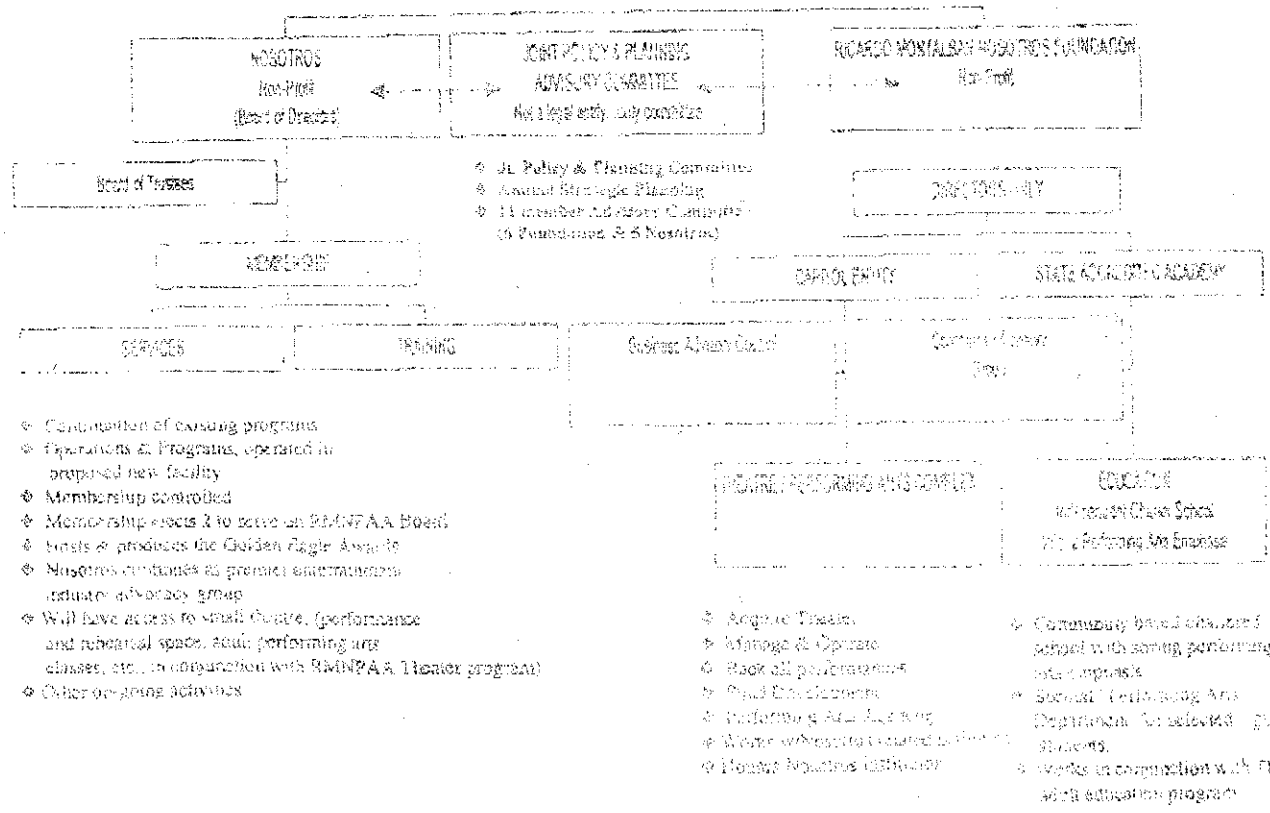 NOSOTROS
Non-Profit
(Board of Directors)
JOINT POLICY & PLANNING
ADVISORY COMMITTEE
Not a legal entity, study committee
RICARDO MONTALBAN NOSOTROS FOUNDATION
Non-Profit
Board of Trustees
Jt. Policy & Planning Committee
Annual Strategic Planning
11 member Advisory Committee
(6 Foundation & 5 Nosotros)
DIRECTORS ONLY
MEMBERSHIP
CAPITOL ENTITY
STATE ACCREDITED ACADEMY
SERVICES
TRAINING
Business Advisory Council
Continuation of existing programs
Operations & Programs, operated in
proposed new facility
Membership controlled
Membership elects 2 to serve on RMNPAA Board
Hosts & produces the Golden Eagle Awards
Nosotros continues as premier entertainment
industry advocacy group
Will have access to small theatre, (performance
and rehearsal space, adult performing arts
classes, etc., in conjunction with RMNPAA Theater program)
Other on-going activities
PERFORMING ARTS COMPLEX
EDUCATION
Charter School
Performing Arts Emphasis
Acquire Theater
Manage & Operate
Book all performances
Fund Development
Performing Arts Academy
Houses Nosotros institution
Community based chartered
school with strong performing
arts emphasis
Performing Arts
Department for selected
students.
Works in conjunction with
adult education program